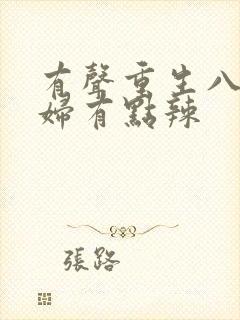 有聲重生八
婦有點辣
張路